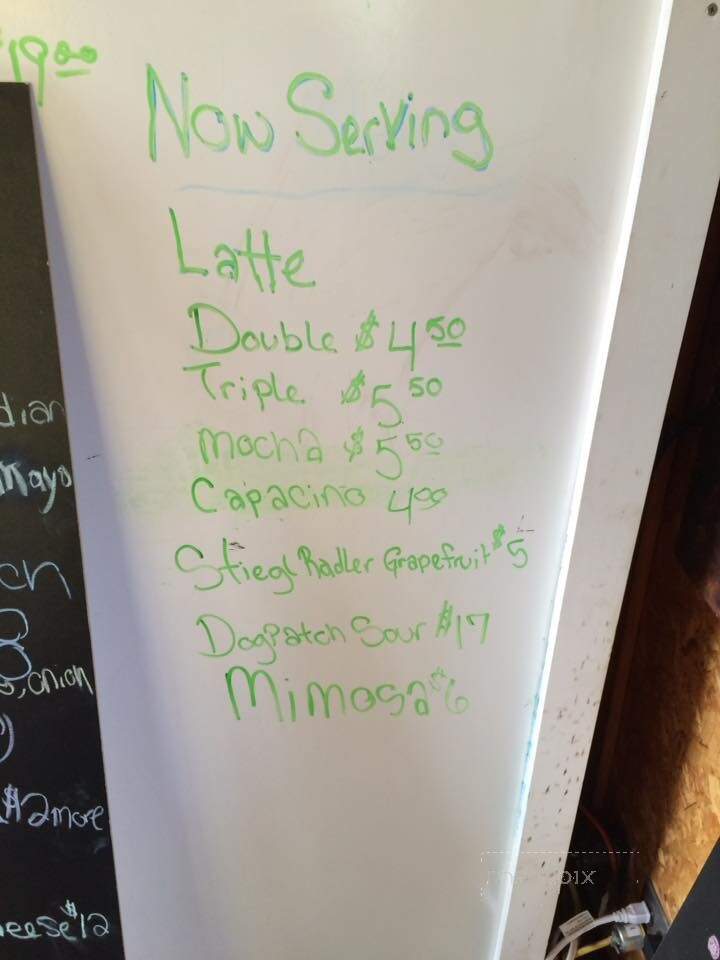 $19.00
Now Serving
Latte
Double $4 50
Triple $5 50
Mocha $5 50
Capacino 4 00
Stiegl Radler Grapefruit $5
Dogpatch Sour $17
Mimosa $6
dian
Mayo
ch
onion
$2 more
eese $12